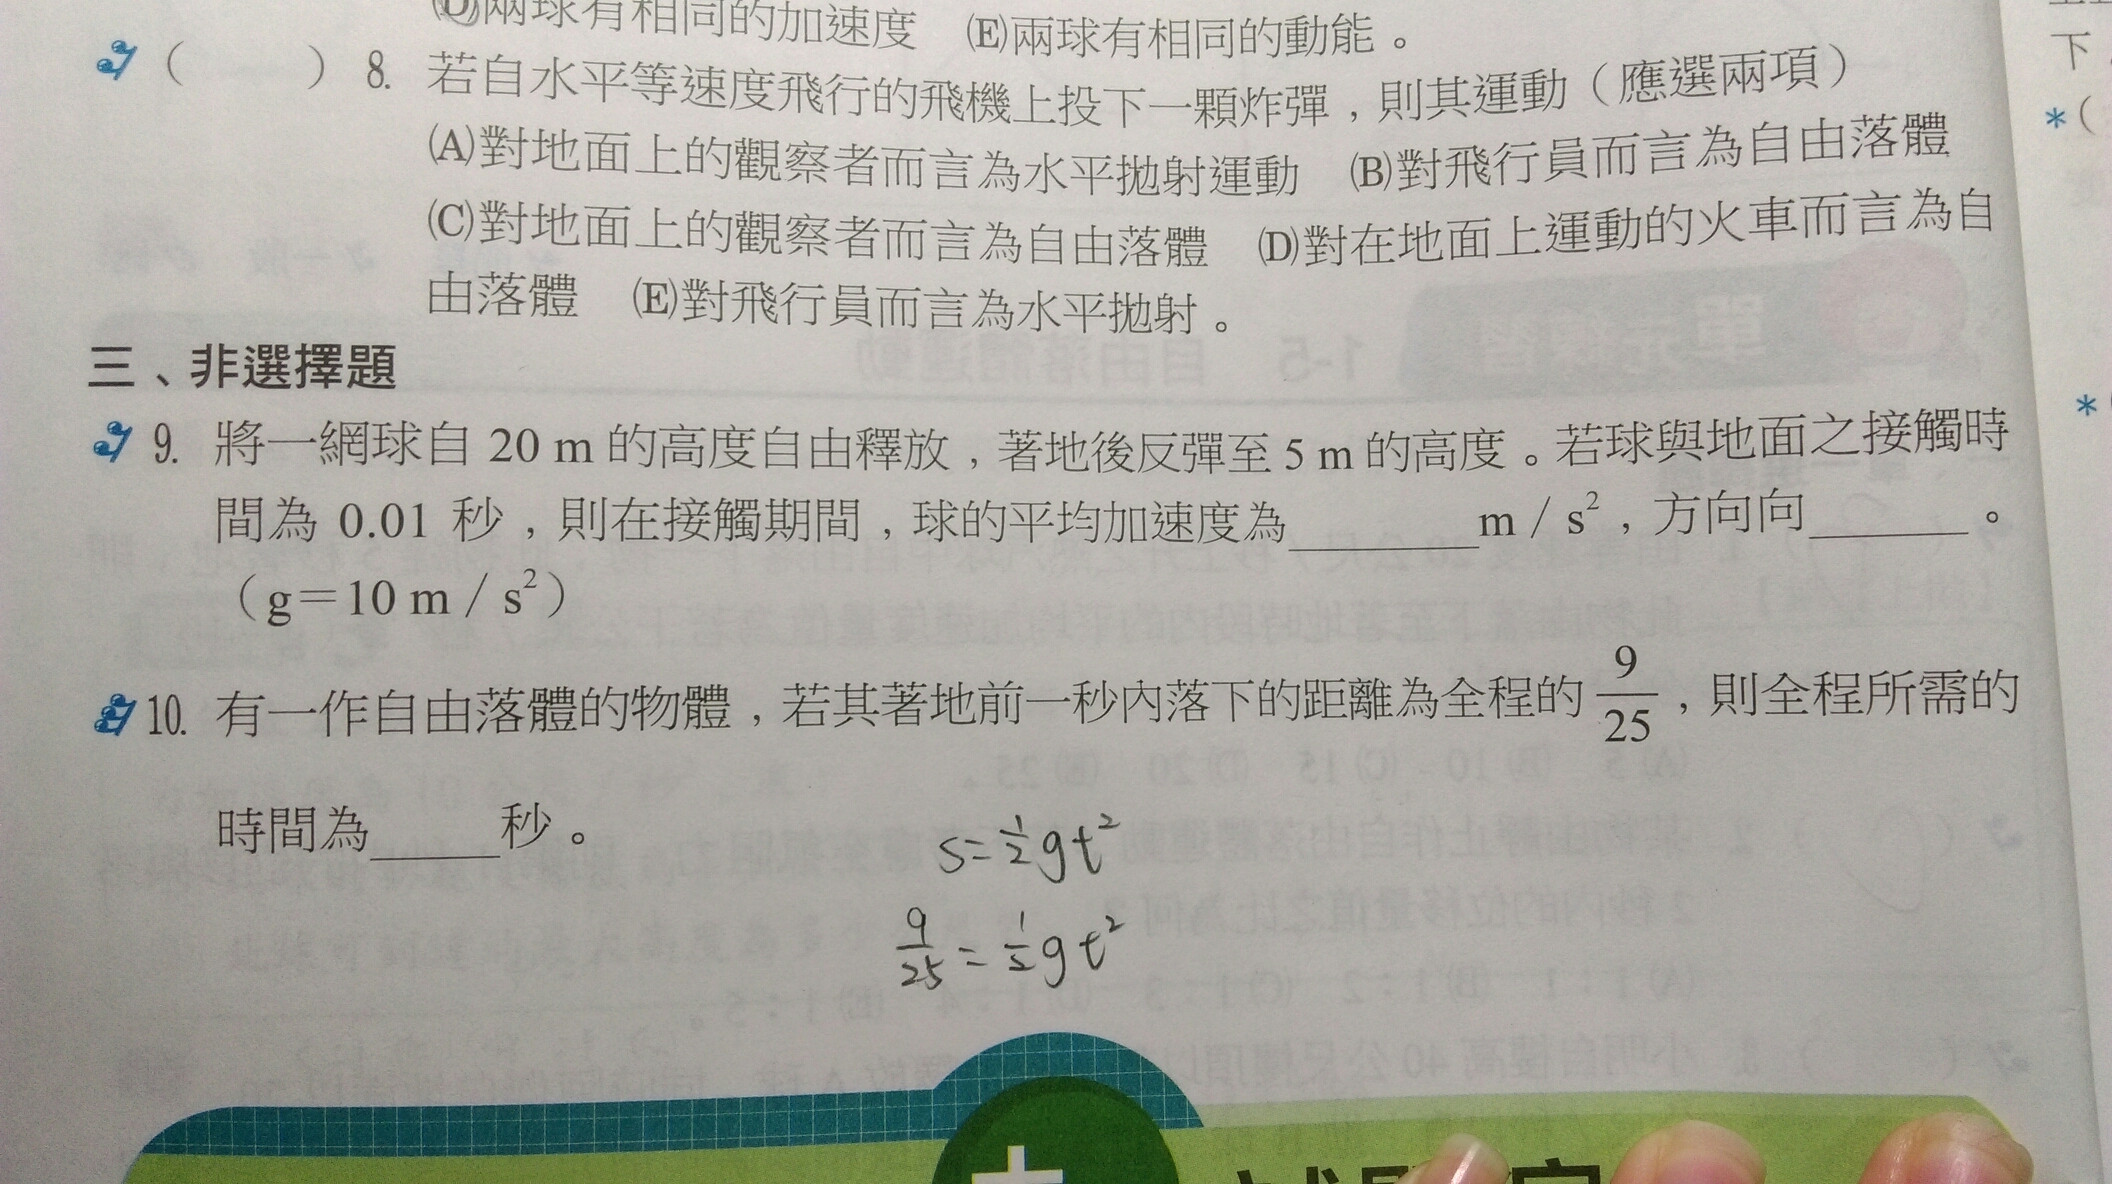 (D)兩球有相同的加速度 (E)兩球有相同的動能。
( ) 8. 若自水平等速度飛行的飛機上投下一顆炸彈,則其運動(應選兩項)
(A)對地面上的觀察者而言為水平拋射運動 (B)對飛行員而言為自由落體
(C)對地面上的觀察者而言為自由落體 (D)對在地面上運動的火車而言為自
由落體 (E)對飛行員而言為水平拋射。
三、非選擇題
9. 將一網球自 20 m 的高度自由釋放,著地後反彈至 5 m 的高度。若球與地面之接觸時
間為 0.01 秒,則在接觸期間,球的平均加速度為______m/s²,方向向______。
(g=10 m/s²)
10. 有一作自由落體的物體,若其著地前一秒內落下的距離為全程的 9/25,則全程所需的
時間為_____秒。
s=½gt²
9/25=½gt²
下
*(
*